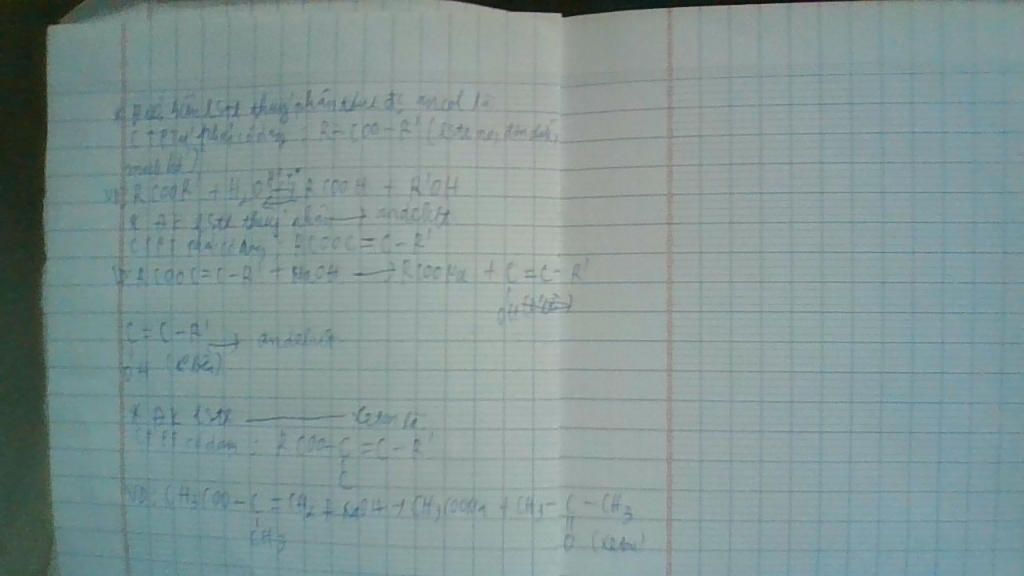 * Điều kiện este thuỷ phân thu đc ancol là
CTPT phải dạng : R-COO-R' (este no, đơn chức,
mạch hở)
VD: RCOOR' + H2O ⇌ RCOOH + R'OH
* ĐK este thuỷ phân → anđehit
CTPT phải dạng RCOOC=C-R'
VD: RCOOC=C-R' + NaOH → RCOONa + C=C-R'
OH
C=C-R' → anđehit
OH
* ĐK este ——— xeton là
CTPT có dạng : RCOO-C=C-R'
C
VD: CH3COO-C=CH2 + NaOH → CH3COONa + CH3-C-CH3
CH3 O (xeton)